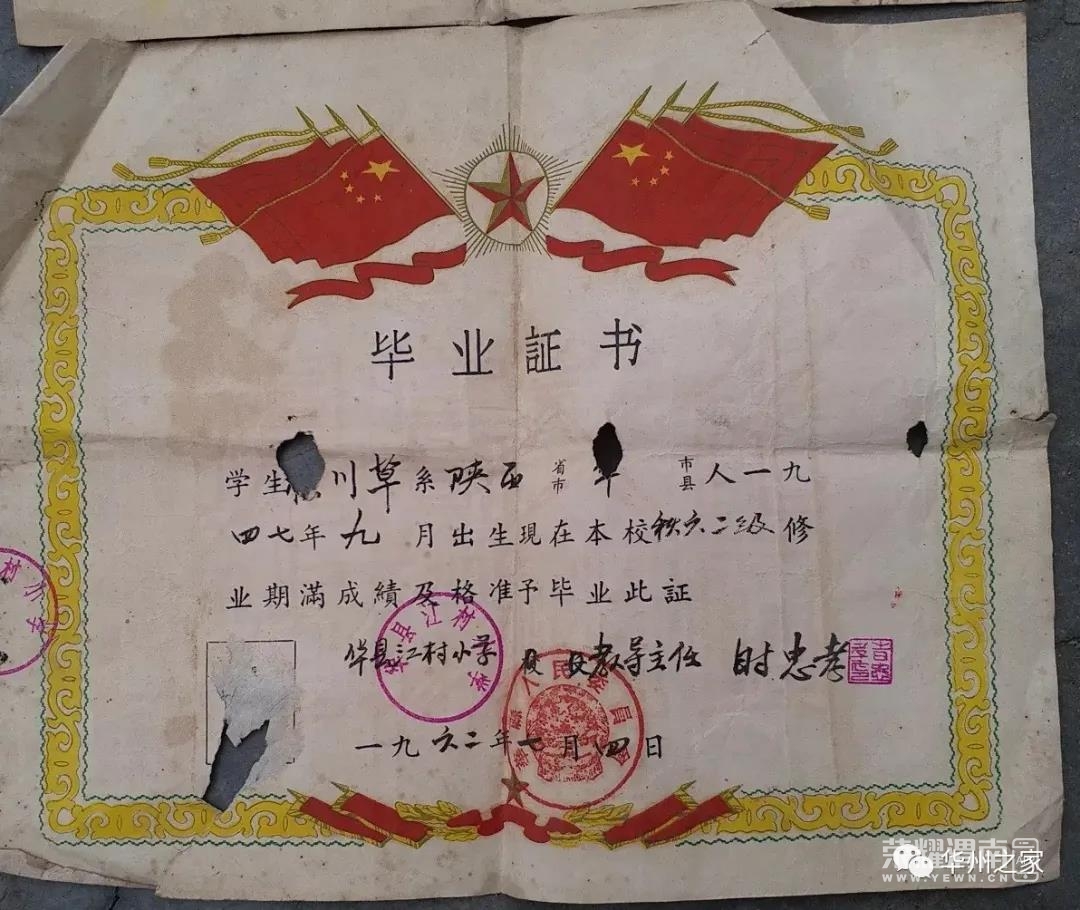 毕业証书
学生 川草系陕西省市华市县人一九
四七年九月出生現在本校秋六二级修
业期滿成績及格准予毕业此証
华县江村小学 教导主任 时忠孝
华县江村小学
人民委員会
一九六二年七月四日
荣耀渭南
WWW.YEWN.CN
华州之家